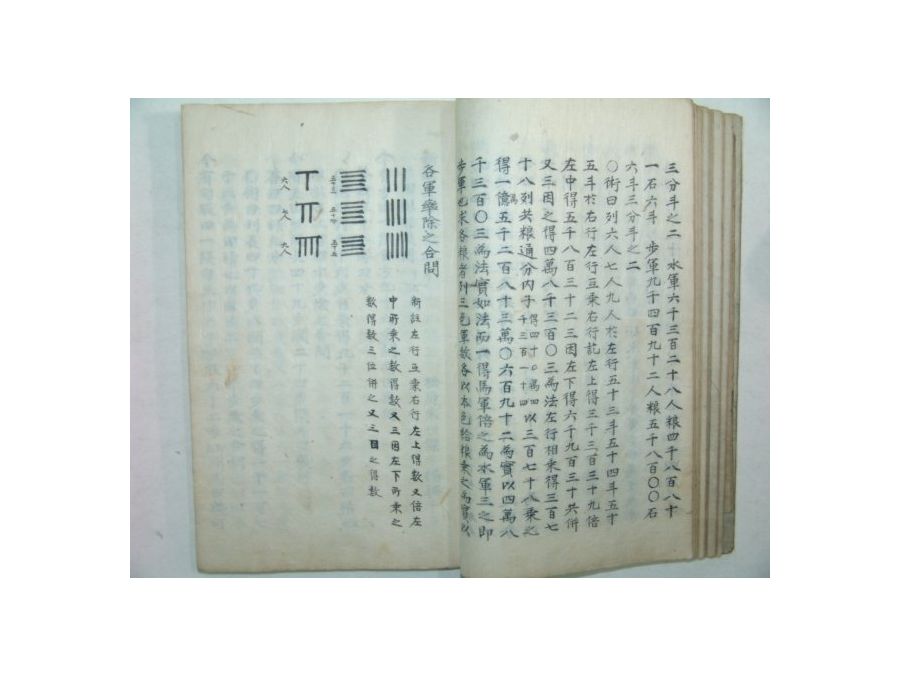 三分斗之二 水軍六千三百二十八人粮四千八百八十
一石六斗 步軍九千四百九十二人粮五千八百〇〇石
六斗三分斗之二
〇術曰列六人七人九人於左行五十三斗五十四斗五十
五斗於右行左行互乘右行訖左上得三千三百三十九倍
左中得五千八百三十二三因左下得六千九百三十共併
又三因之得四萬八千三百〇三為法左行相乘得三百七
十八列共粮通分內子得四十〇萬四千三百一十四以三百七十八乘之
得一億五千二百八十三萬〇六百九十二為實以四萬八
千三百〇三為法實如法而一得馬軍倍之為水軍三之即
步軍也求各粮者列三色軍數各以本色給粮乘之為實以
各軍率除之合問
五十三 五十四 五十五
六人 七人 九人
新註左行互乘右行左上得數又倍左
中所乘之數得數又三因左下所乘之
數得數三位併之又三因之得數